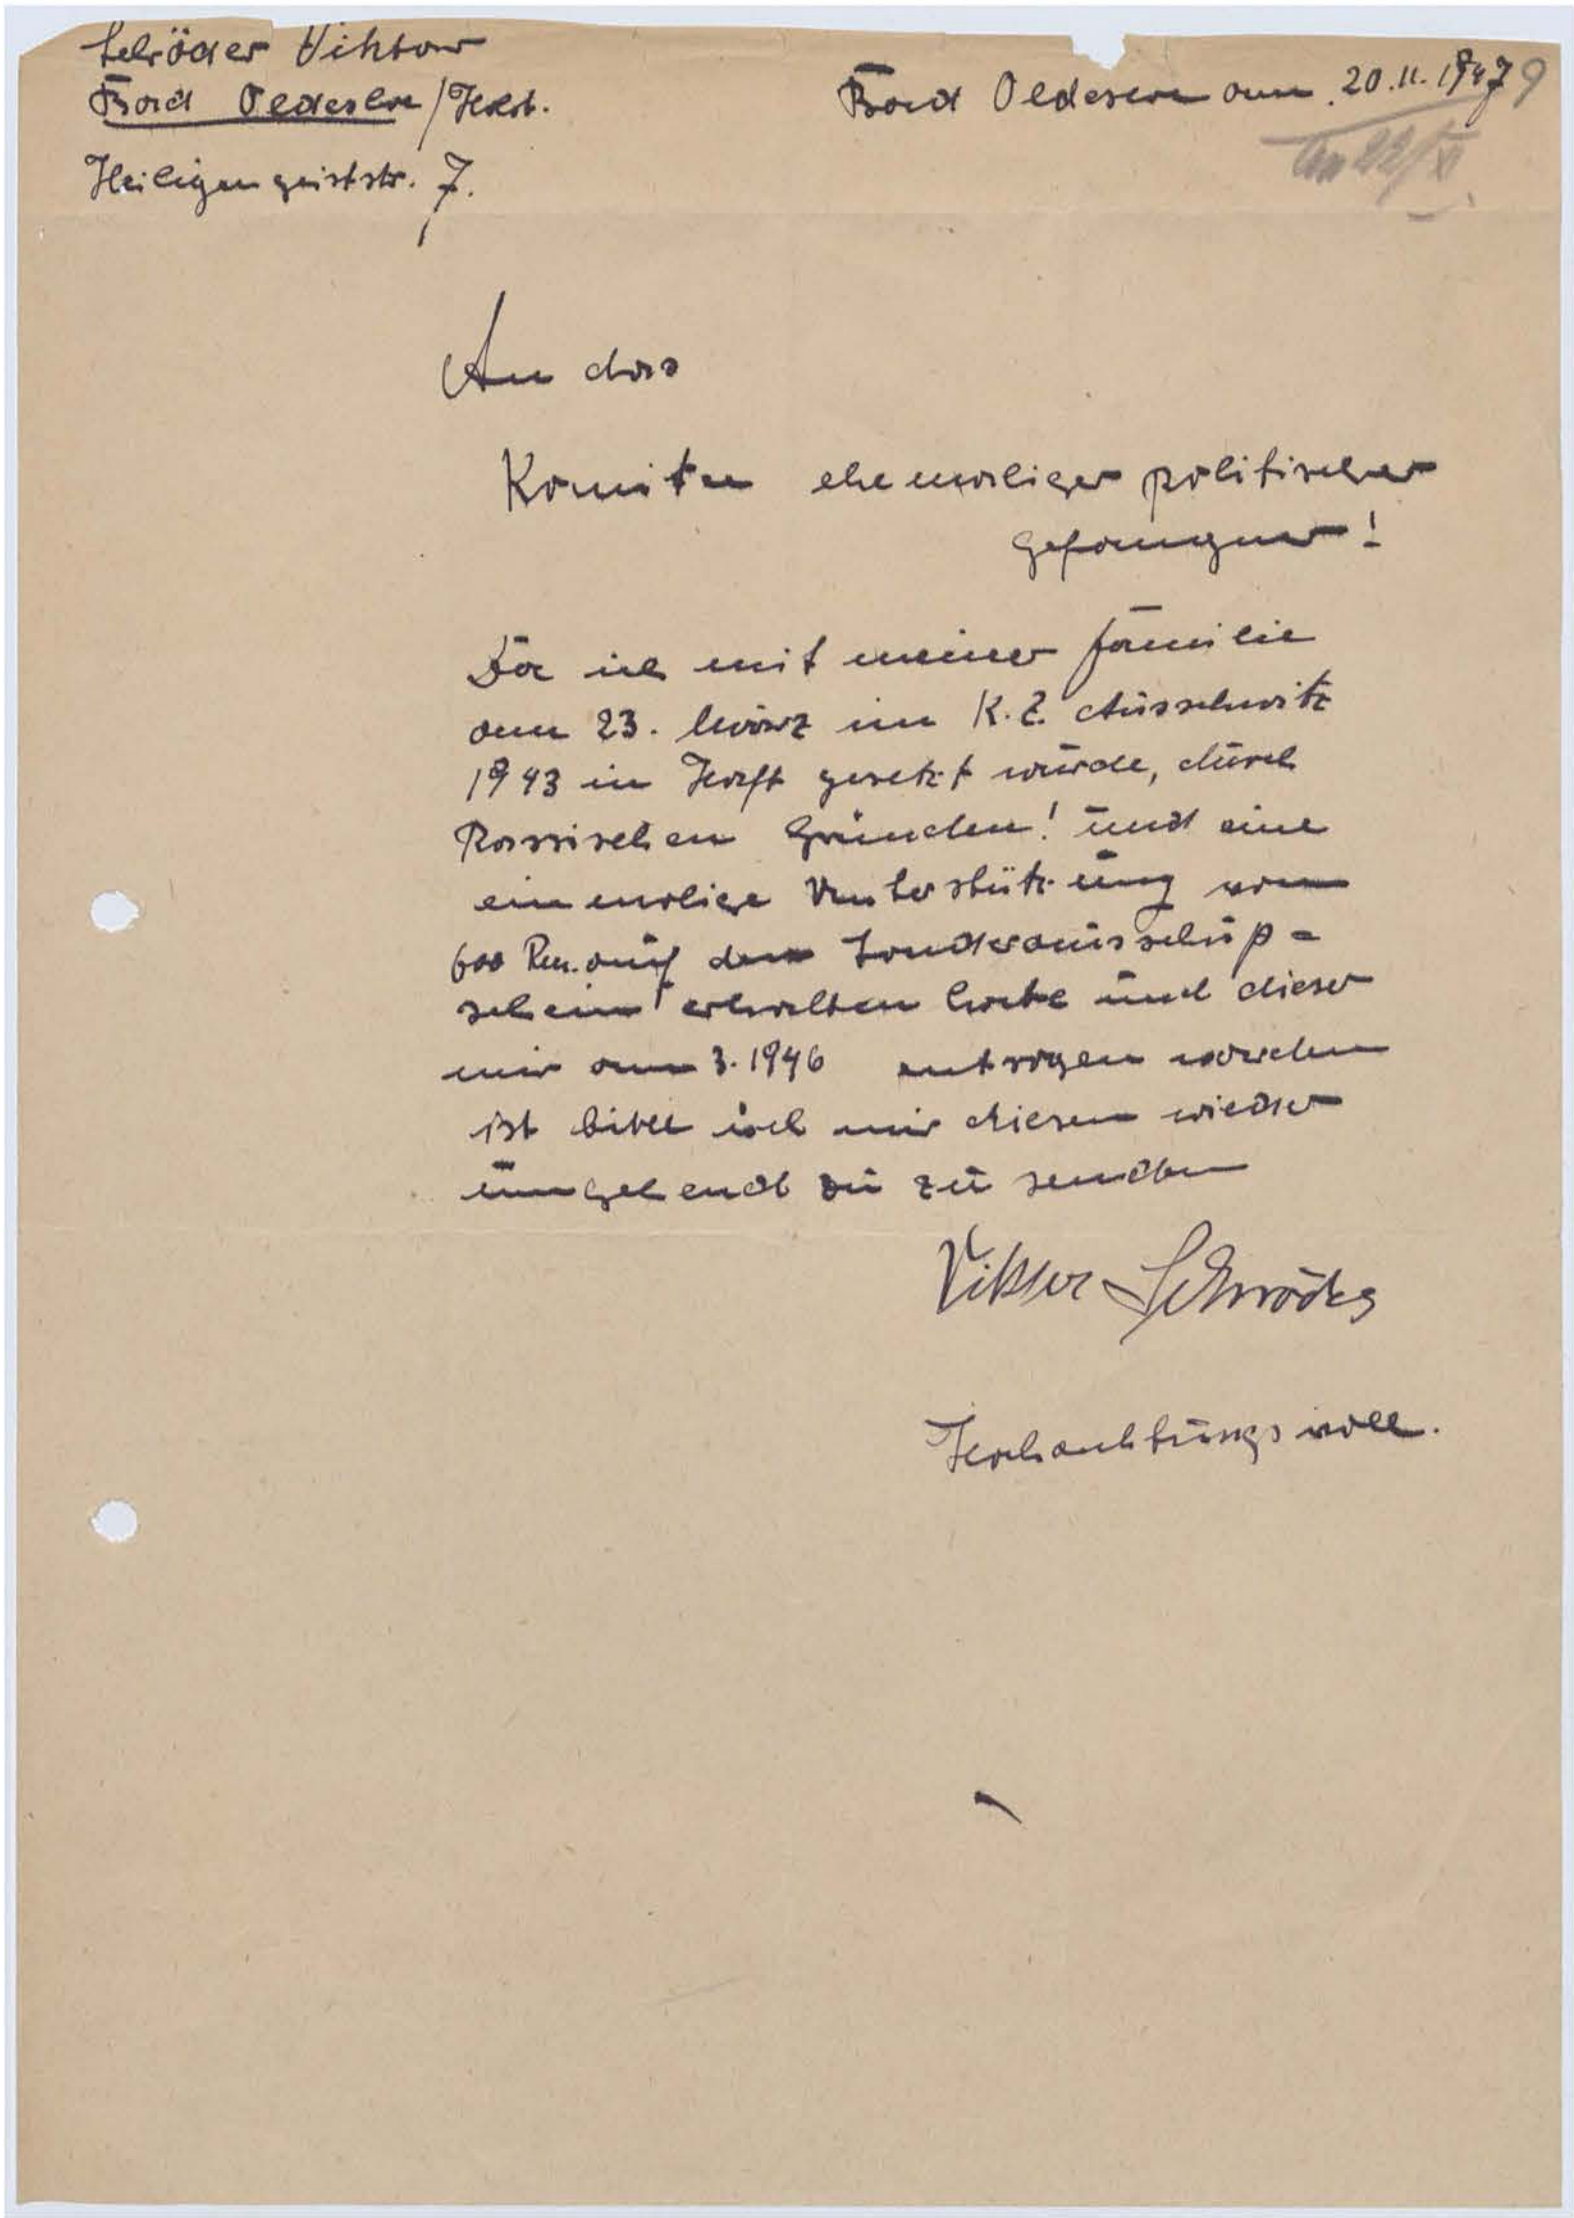 Schröder Viktor
Bad Oldesloe / Holst.
Bad Oldesloe am 20.11.1947
9
Heiligengeiststr. 7.
An das
Komitee ehemaliger politischer
Gefangner!
Da ich mit meiner Familie
am 23. März im K.Z. Ausschwitz
1943 in Haft gesetzt wurde, durch
Rassischen Gründen! und eine
einmalige Unterstützung von
600 Rm. auf den Sonderausschuß=
schein erhalten habe und dieser
mir am 3.1946 entzogen worden
ist bitte ich mir diesen wieder
umgehendt zu zu senden
Viktor Schröder
Hochachtungsvoll.